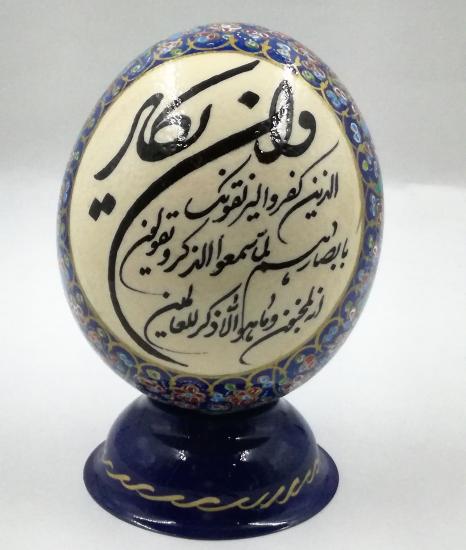 وان یکاد
الذین کفروا لیزلقونک
بابصارهم لما سمعوا الذکر و یقولون
انه لمجنون و ما هو الا ذکر للعالمین